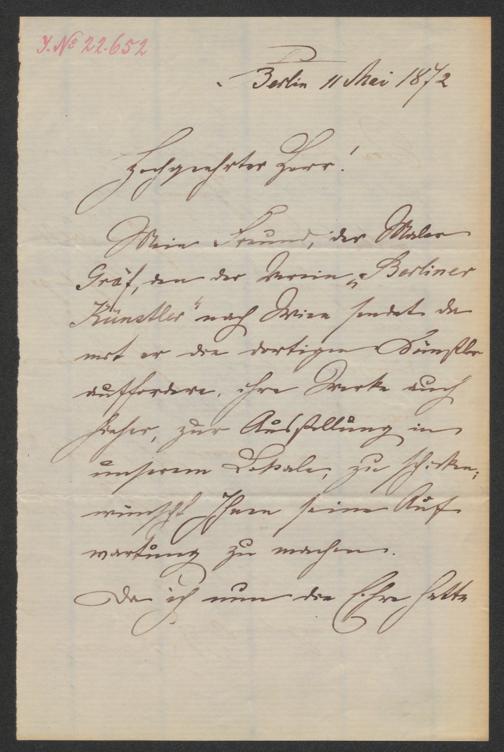 J. № 22.652
Berlin 11 Mai 1872
Hochgeehrter Herr!
Mein Freund, der Maler
Gräf, den der Verein „Berliner
Künstler" nach Wien sendet da
mit er die dortigen Künstler
auffordere, ihre Werke auch
hieher, zur Ausstellung in
unserem Lokale, zu schicken,
wünscht Ihnen seine Auf
wartung zu machen.
Da ich nun die Ehre hatte